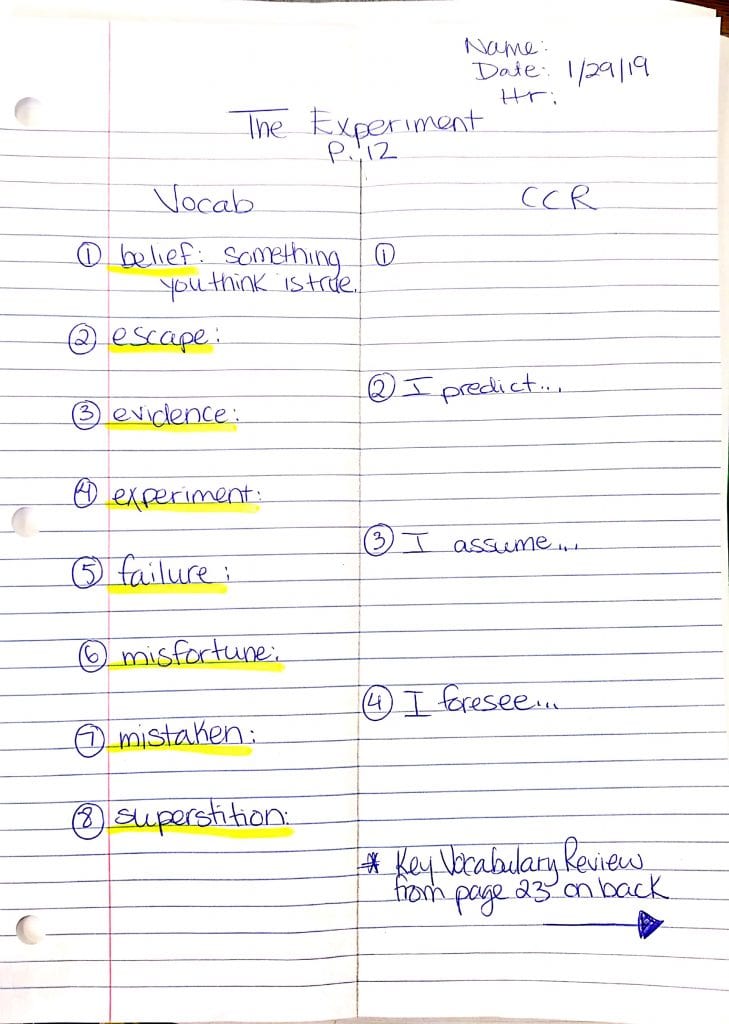 Name:
Date: 1/29/19
Hr:
The Experiment
P. 12
Vocab
① belief: something
you think is true.
② escape:
③ evidence:
④ experiment:
⑤ failure:
⑥ misfortune:
⑦ mistaken:
⑧ superstition:
CCR
①
② I predict...
③ I assume...
④ I foresee...
* Key Vocabulary Review
from page 23 on back